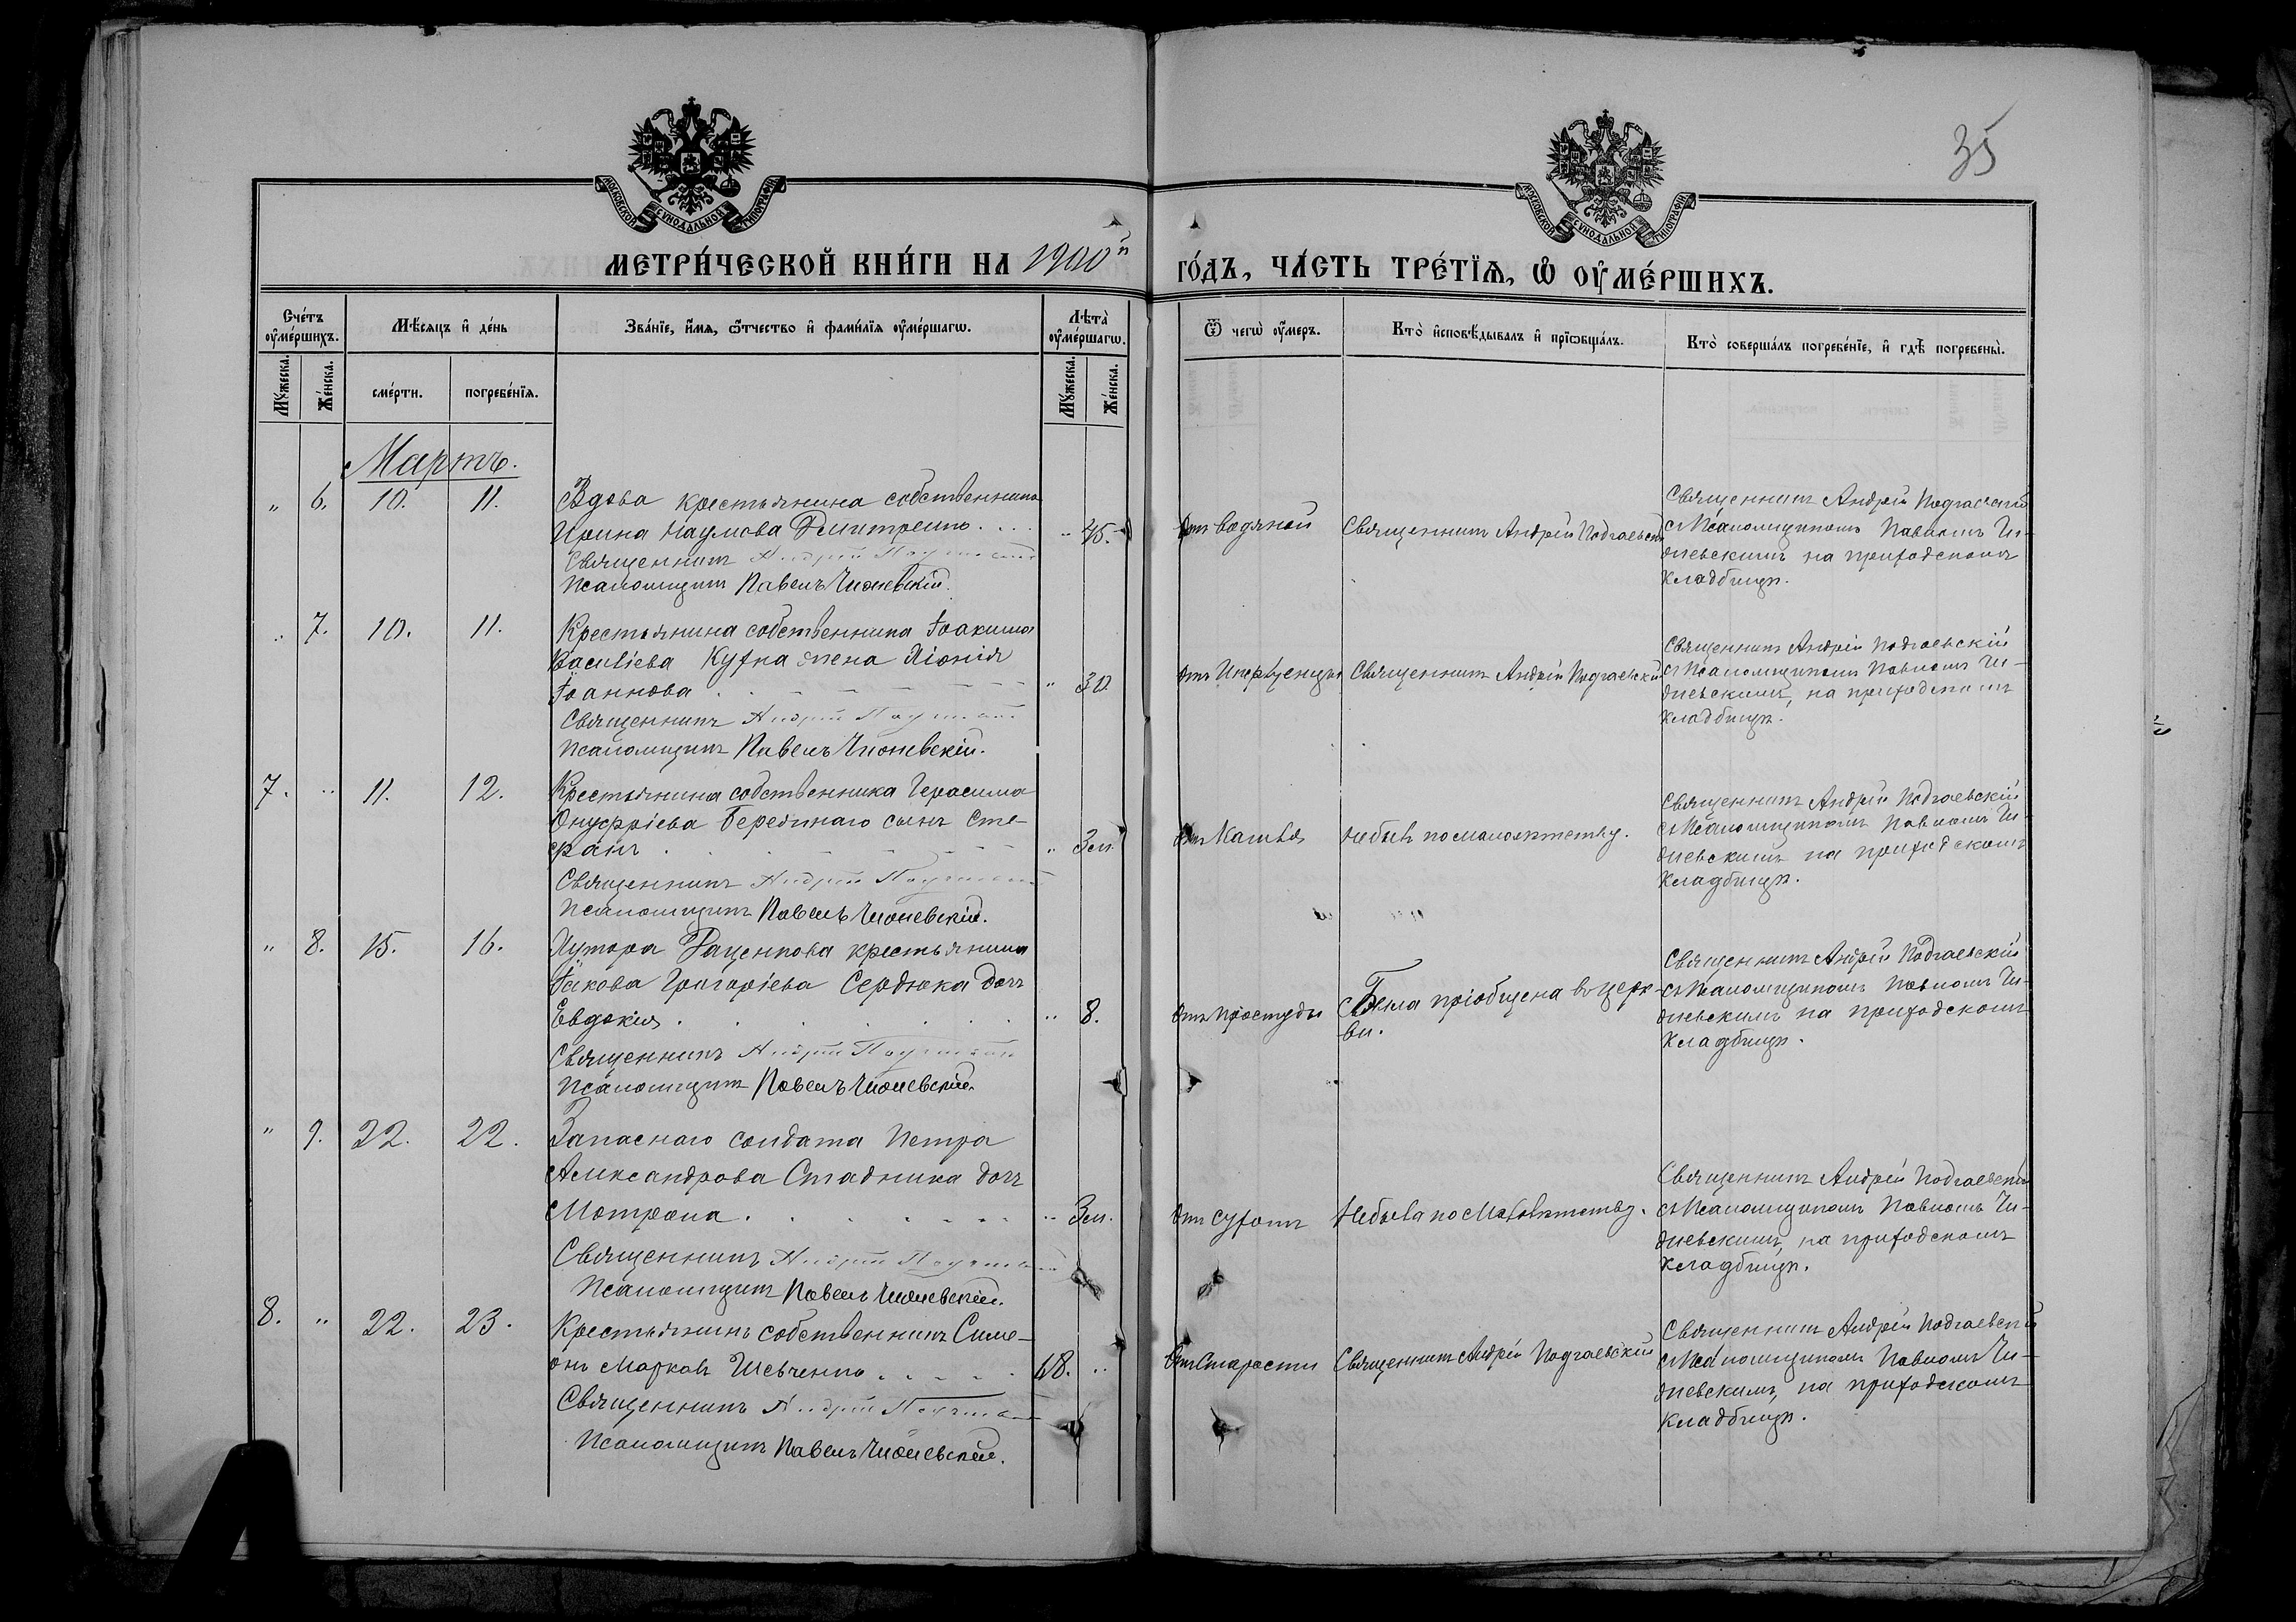 35
МОСКОВСКОЙ СУНОДАЛЬНОЙ ТИПОГРАФІИ
МОСКОВСКОЙ СУНОДАЛЬНОЙ ТИПОГРАФІИ
МЕТРИ́ЧЕСКОЙ КНИ́ГИ НА 1900й ГО́ДЪ, ЧА́СТЬ ТРЕ́ТЇѦ, Ѡ ОУ҆МЕ́РШИХЪ.
Сче́тъ оу҆ме́ршихъ.
Мꙋ́жеска.
Же́нска.
Мѣ́сяцъ и҆ де́нь
сме́рти.
погребе́нїѧ.
Зва́нїе, и҆́мѧ, ѻ҆́тчество и҆ фами́лїѧ оу҆ме́ршагѡ.
Лѣта̀ оу҆ме́ршагѡ.
Мꙋ́жеска.
Же́нска.
Ѿ чегѡ̀ оу҆́меръ.
Кто̀ и҆сповѣ́дывалъ и҆ прїѻбща́лъ.
Кто̀ соверша́лъ погребе́нїе, и҆ гдѣ̀ погребены̀.
Мартъ.
" 6. 10. 11.
Вдова крестьянина собственника
Ирина Наумова Дмитренко . . . " 45.
Священникъ Андрей
Псаломщикъ Павелъ Чижевскій.
Отъ водяной
Священникъ Андрей Подгаевскій
Священникъ Андрей Подгаевскій
съ Псаломщикомъ Павломъ Чи-
жевскимъ на приходскомъ
кладбищѣ.
" 7. 10. 11.
Крестьянина собственника Іоакима
Василіева Кухна жена Хіонія
Іоаннова . " 30
Священникъ Андрей
Псаломщикъ Павелъ Чижевскій.
Отъ Инфлуенцы
Священникъ Андрей Подгаевскій
Священникъ Андрей Подгаевскій
съ Псаломщикомъ Павломъ Чи-
жевскимъ, на приходскомъ
кладбищѣ.
7. " 11. 12.
Крестьянина собственника Герасима
Онуфріева Бережнаго сынъ Сте-
фанъ . " 3 м.
Священникъ Андрей
Псаломщикъ Павелъ Чижевскій.
Отъ Кашля
Не былъ по малолѣтству.
Священникъ Андрей Подгаевскій
съ Псаломщикомъ Павломъ Чи-
жевскимъ на приходскомъ
кладбищѣ.
" 8. 15. 16.
Хутора Раценкова крестьянина
Іакова Григоріева Сердюка дочь
Евдокія . " 8.
Священникъ Андрей
Псаломщикъ Павелъ Чижевскій.
Отъ простуды
Была пріобщена въ церк-
ви.
Священникъ Андрей Подгаевскій
съ Псаломщикомъ Павломъ Чи-
жевскимъ на приходскомъ
кладбищѣ.
" 9. 22. 22.
Запаснаго солдата Петра
Александрова Стадника дочь
Мотрона . " 3 м.
Священникъ Андрей
Псаломщикъ Павелъ Чижевскій.
Отъ сухотъ
Не была по малолѣтству.
Священникъ Андрей Подгаевскій
съ Псаломщикомъ Павломъ Чи-
жевскимъ, на приходскомъ
кладбищѣ.
8. " 22. 23.
Крестьянинъ собственникъ Симе-
онъ Марковъ Шевченко . . . 68. "
Священникъ Андрей
Псаломщикъ Павелъ Чижевскій.
Отъ Старости
Священникъ Андрей Подгаевскій
Священникъ Андрей Подгаевскій
съ Псаломщикомъ Павломъ Чи-
жевскимъ, на приходскомъ
кладбищѣ.